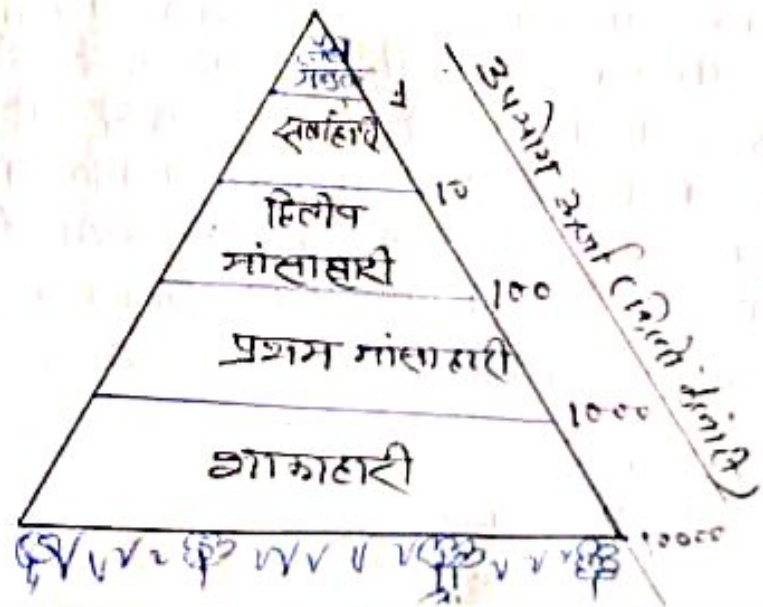 मनुष्य
1
सर्वाहारी
10
द्वितीय
मांसाहारी
100
प्रथम मांसाहारी
1000
शाकाहारी
10000
उपयोग ऊर्जा (किलो कैलोरी)